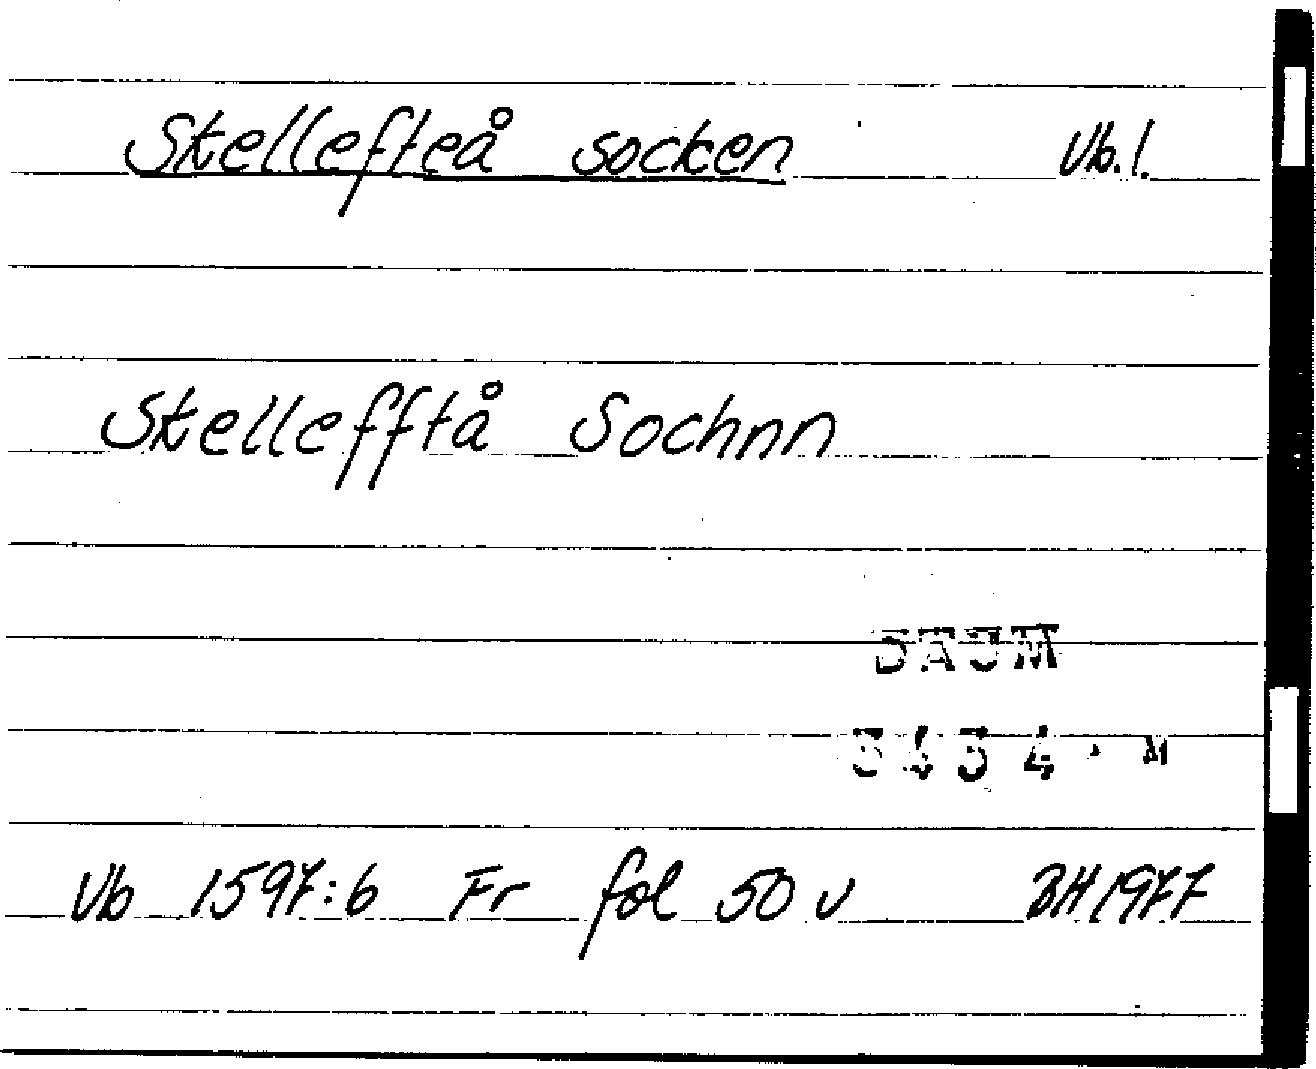 Skellefteå socken Vb. l.
Skellefftå Sochnn
DAUM
Vb 1597:6 Fr fol 50 v BH 1977